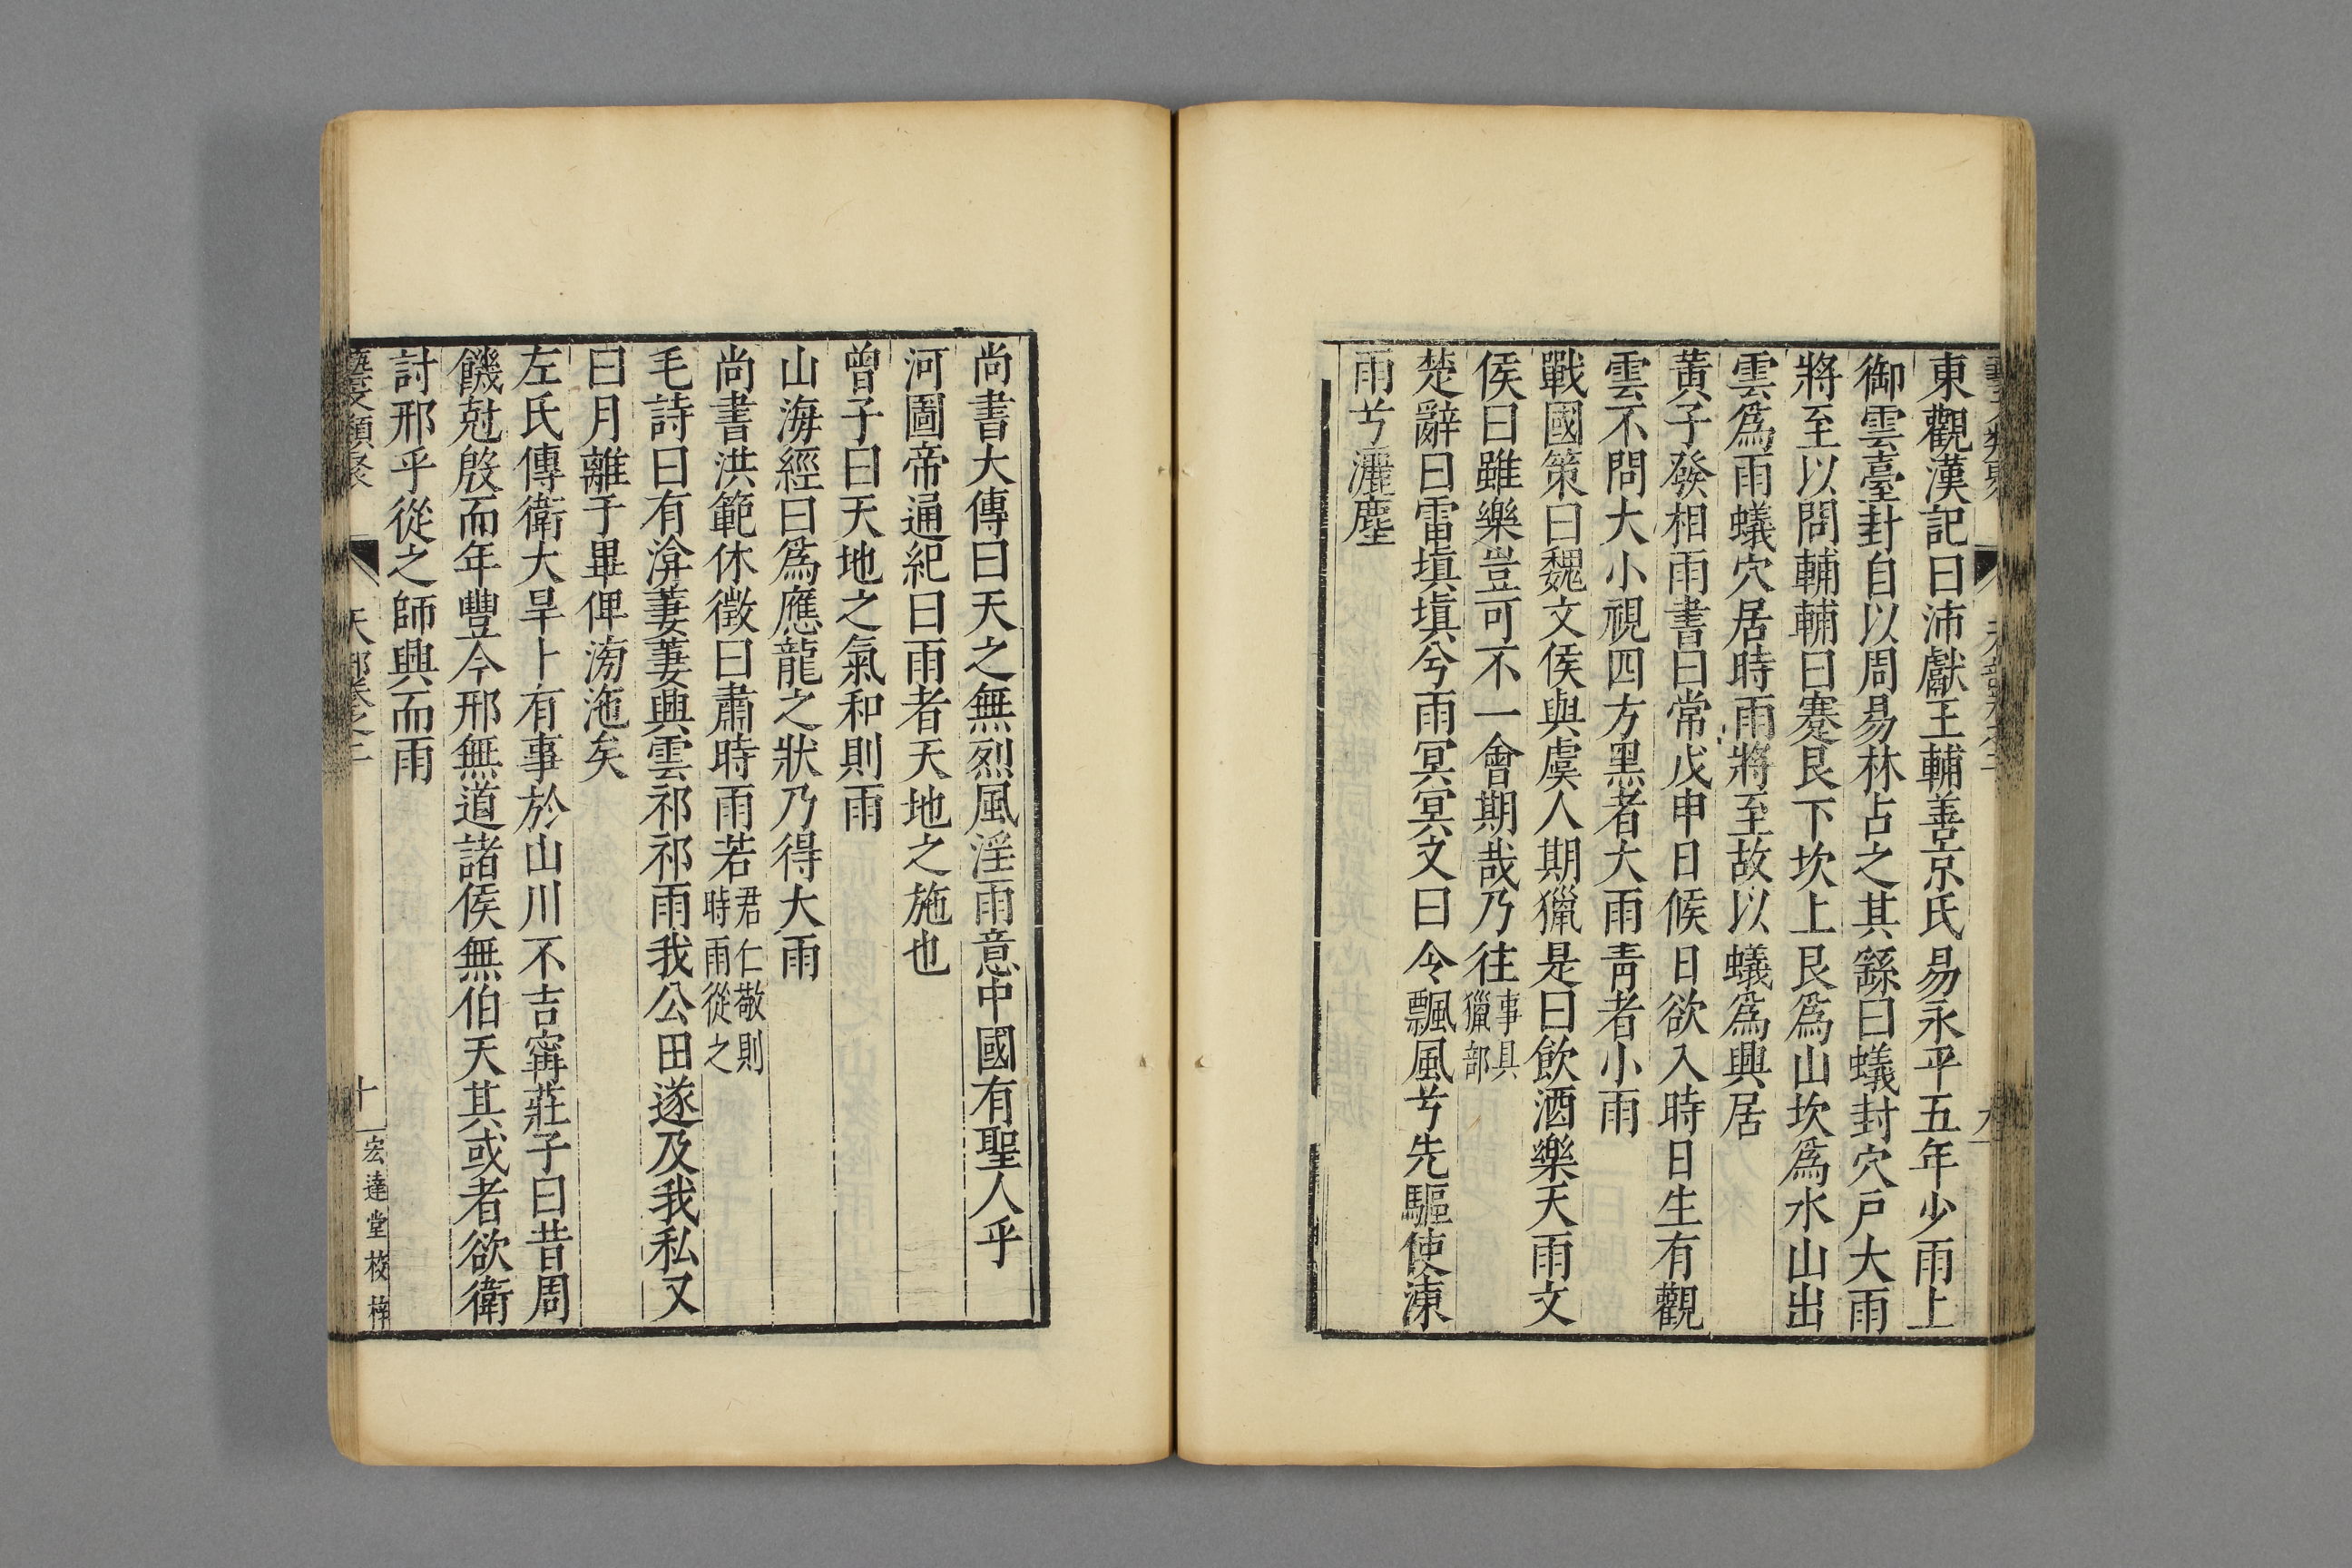 東觀漢記曰沛獻王輔善京氏易永平五年少雨上
御雲臺封自以周易林占之其繇曰蟻封穴戸大雨
將至以問輔輔曰蹇艮下坎上艮爲山坎爲水山出
雲爲雨蟻穴居時雨將至故以蟻爲興居
黃子發相雨書曰常戊申日候日欲入時日生有觀
雲不問大小視四方黑者大雨靑者小雨
戰國策曰魏文侯與虞人期獵是日飮酒樂天雨文
侯曰雖樂豈可不一會期哉乃往事具獵部
楚辭曰雷塡塡兮雨冥冥文曰令飄風兮先驅使涷
雨兮灑塵
尚書大傳曰天之無烈風淫雨意中國有聖人乎
河圖帝通紀曰雨者天地之施也
曾子曰天地之氣和則雨
山海經曰爲應龍之狀乃得大雨
尚書洪範休徵曰肅時雨若君仁敬則時雨從之
毛詩曰有渰萋萋興雲祁祁雨我公田遂及我私又
曰月離于畢俾滂沲矣
左氏傳衛大旱卜有事於山川不吉甯莊子曰昔周
饑尅殷而年豐今邢無道諸侯無伯天其或者欲衛
討邢乎從之師興而雨
天部卷之二
十
宏達堂校梓